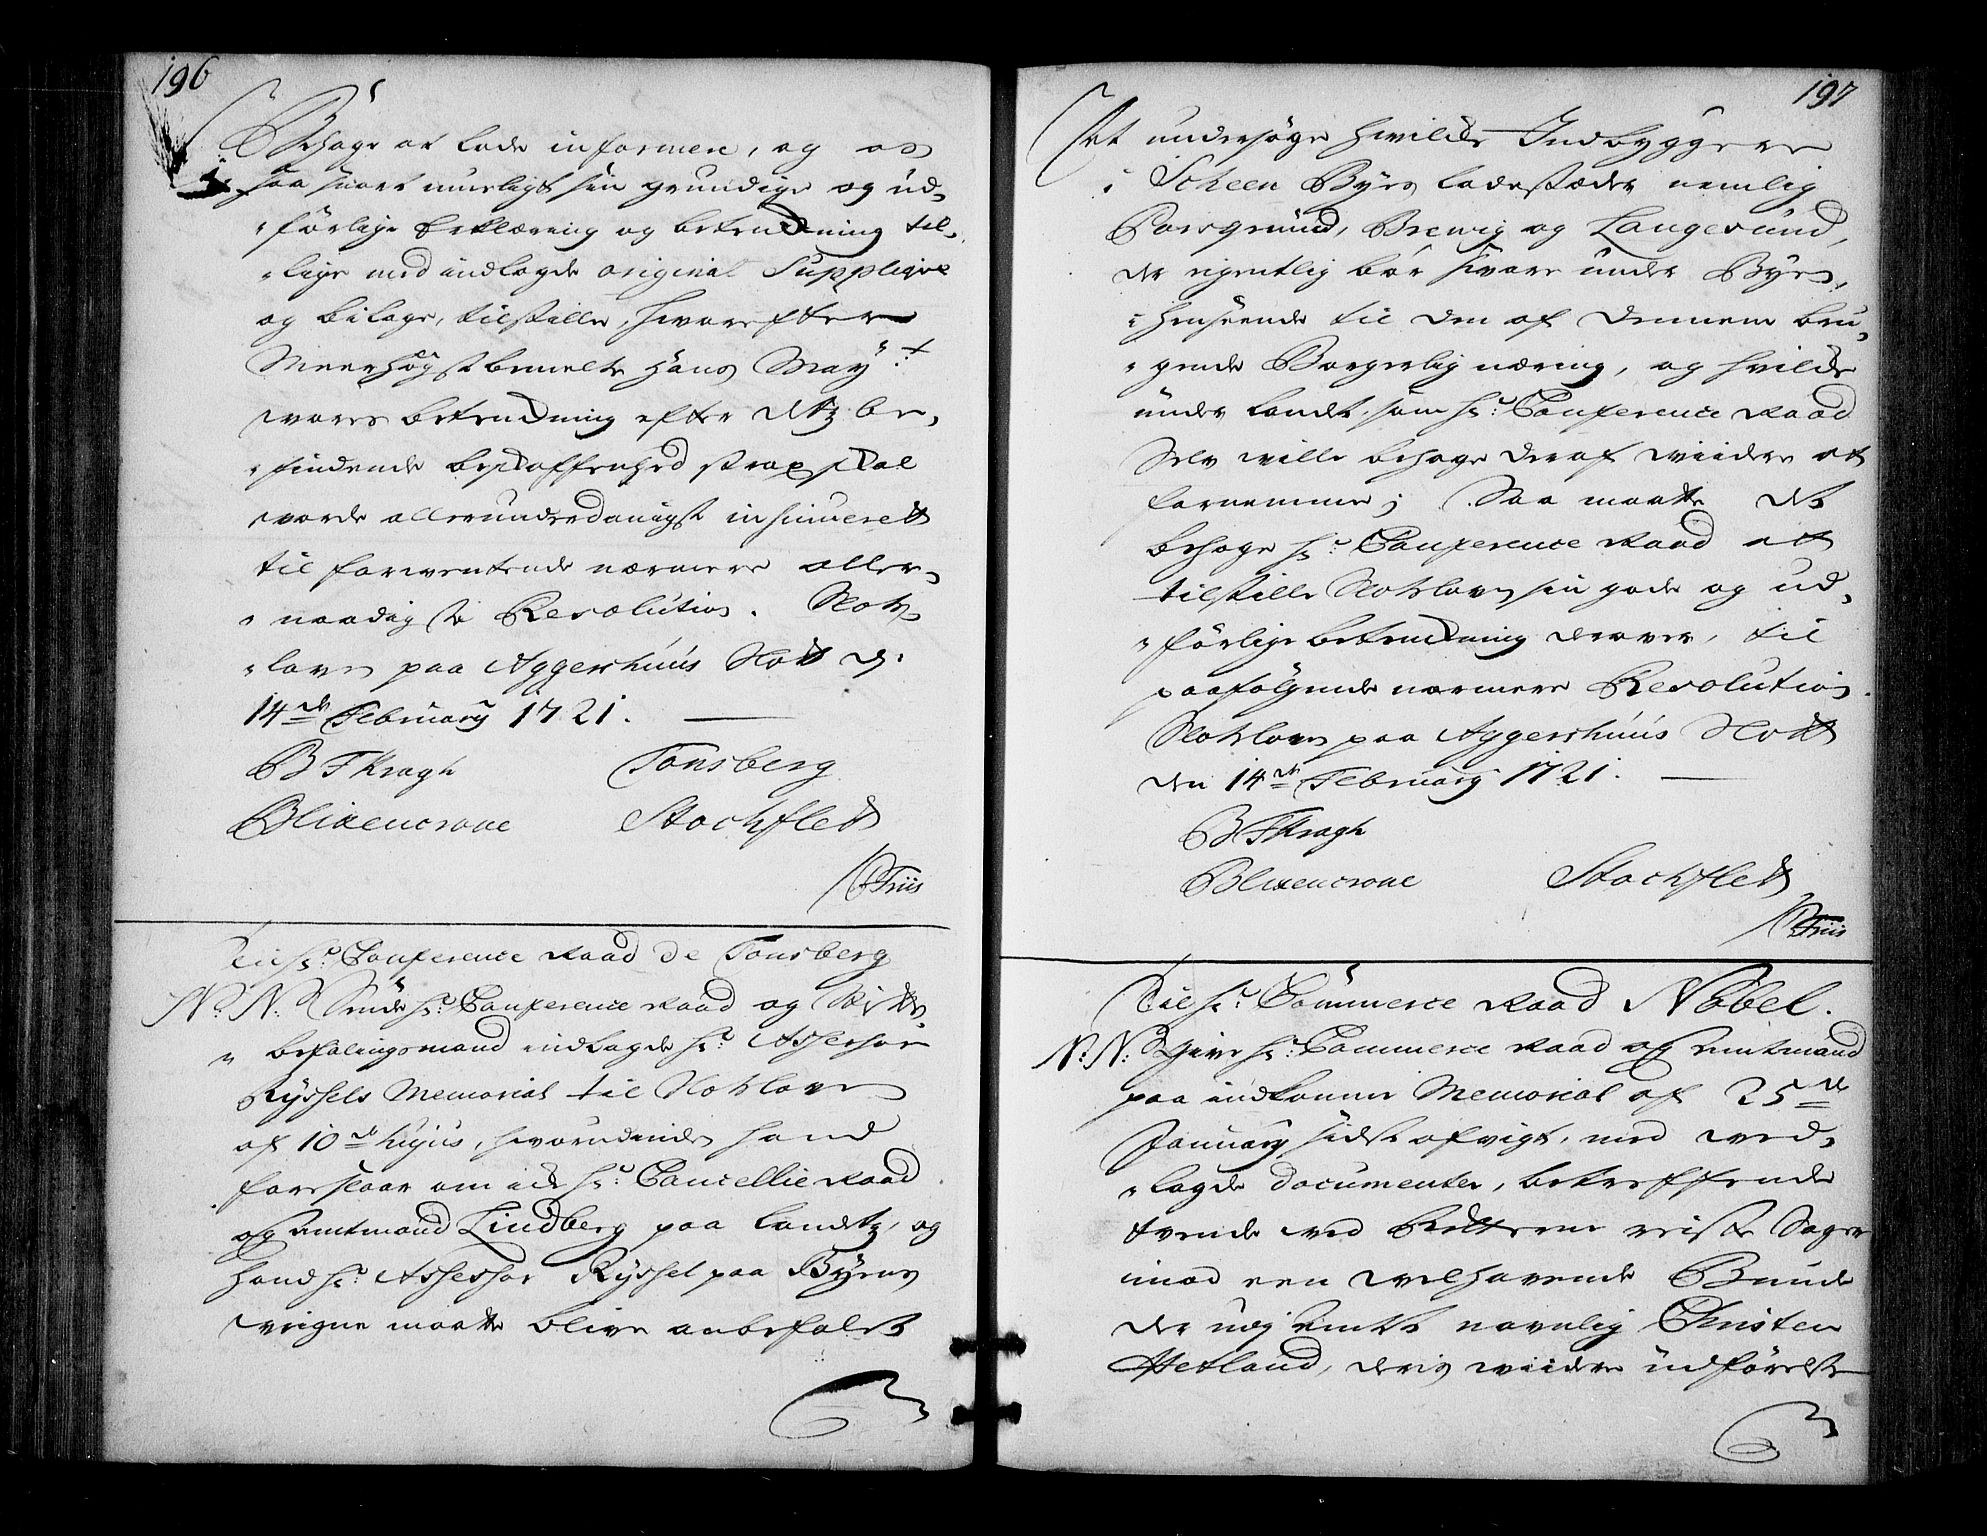 196
Behage at lade informere, og os
saa snart mueligt sin grundige og ud-
førlige Erklæring og betenckning til-
lige med indlagde original Supplique
og bilage, tilstille, hvorefter
Meerhøgstbemelte Hans May:t
vores betenckning efter dets be-
findende beskaffenhed strax skal
vorde allerunderdanigst insinueret
til forventende nærmere aller-
naadigste Resolution. Slots-
loven paa Aggershuus Slott d.
14de February 1721.
B F Kragh Tonsberg
Blixencrone Stockflett
Friis
Til Hr: Conference Raad De Tonsberg
N: N: Sende Hr: Conference Raad og Stifts-
befalingsmand indlagde Hr: Assessor
Ryssels Memorial til Slotsloven
af 10de hujus, hvorudinden hand
foreslaar om icke Hr: Cancellie Raad
og Amtmand Lindberg paa Landets, og
Hand Hr: Assessor Ryssel paa Byens
veigne maatte blive anbefalet
197
Att undersøge hvilcke Indbyggere
i Scheen Byes ladestæder nemlig
Porsgrund, Brewig og Langesund,
der eigentlig bør svare under Byen,
i henseende til den af dennem bru-
gende Borgerlig næring, og hvilcke
under Landet, som Hr: Conference Raad
Selv wille behage deraf widere at
fornemme; Saa maatte det
behage Hr: Conference Raad at
tilstille Slotsloven sin gode og ud-
førlige betenckning derover, til
paafølgende nærmere Resolution.
Slotsloven paa Aggershuus Slott
den 14de February 1721.
B F Kragh
Blixencrone Stockflett
Friis
Til Hr: Commerce Raad Nobel.
N: N: Giver Hr: Commerce Raad og Amtmand
paa indkomne Memorial af 25de
January sidst afvigt, med ved-
lagde documenter, betreffende
tvende ved Retterne reiste Sager
imod een velhavende Bonde
der udj Amtet navnlig Christen
Hetland, deris widere udførelse